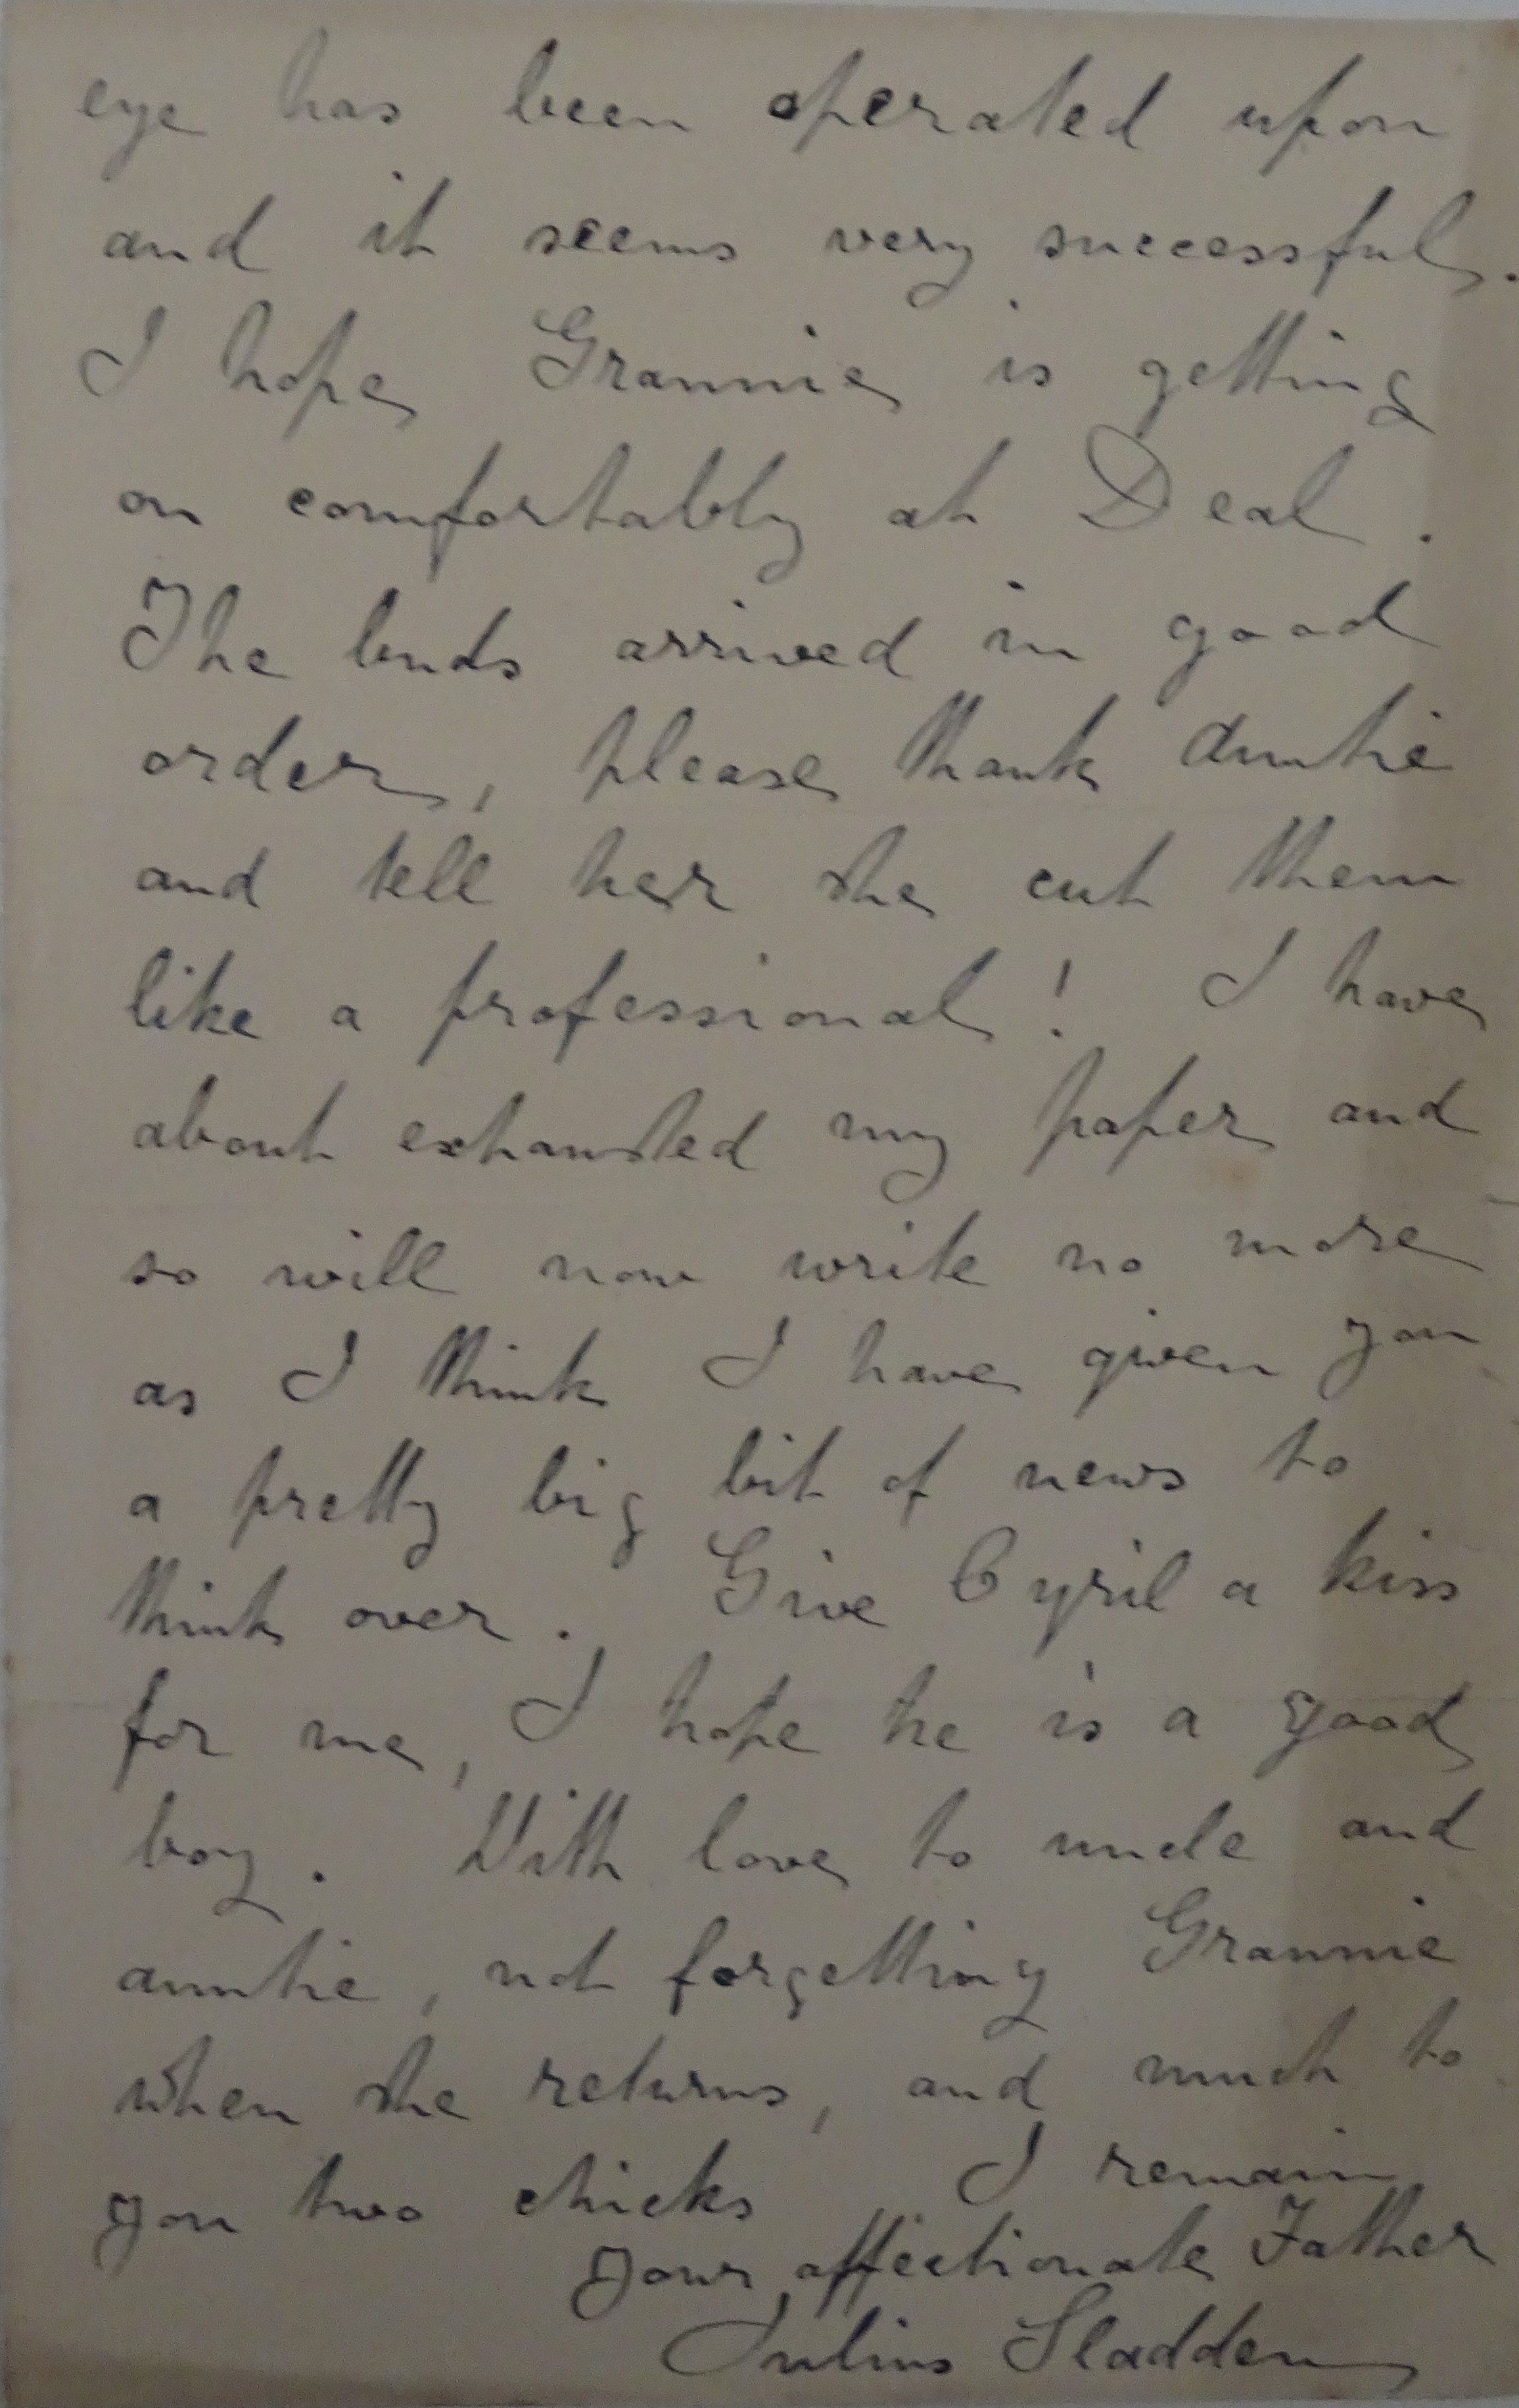 eye has been operated upon
and it seems very successful.
I hope Grannie is getting
on comfortably at Deal.
The buds arrived in good
order, please thank Auntie
and tell her she cut them
like a professional! I have
about exhausted my paper and
so will now write no more
as I think I have given you
a pretty big bit of news to
think over. Give Cyril a kiss
for me, I hope he is a good
boy. With love to uncle and
auntie, not forgetting Grannie
when she returns, and much to
you two chicks I remain
your affectionate Father
Julius Sladden